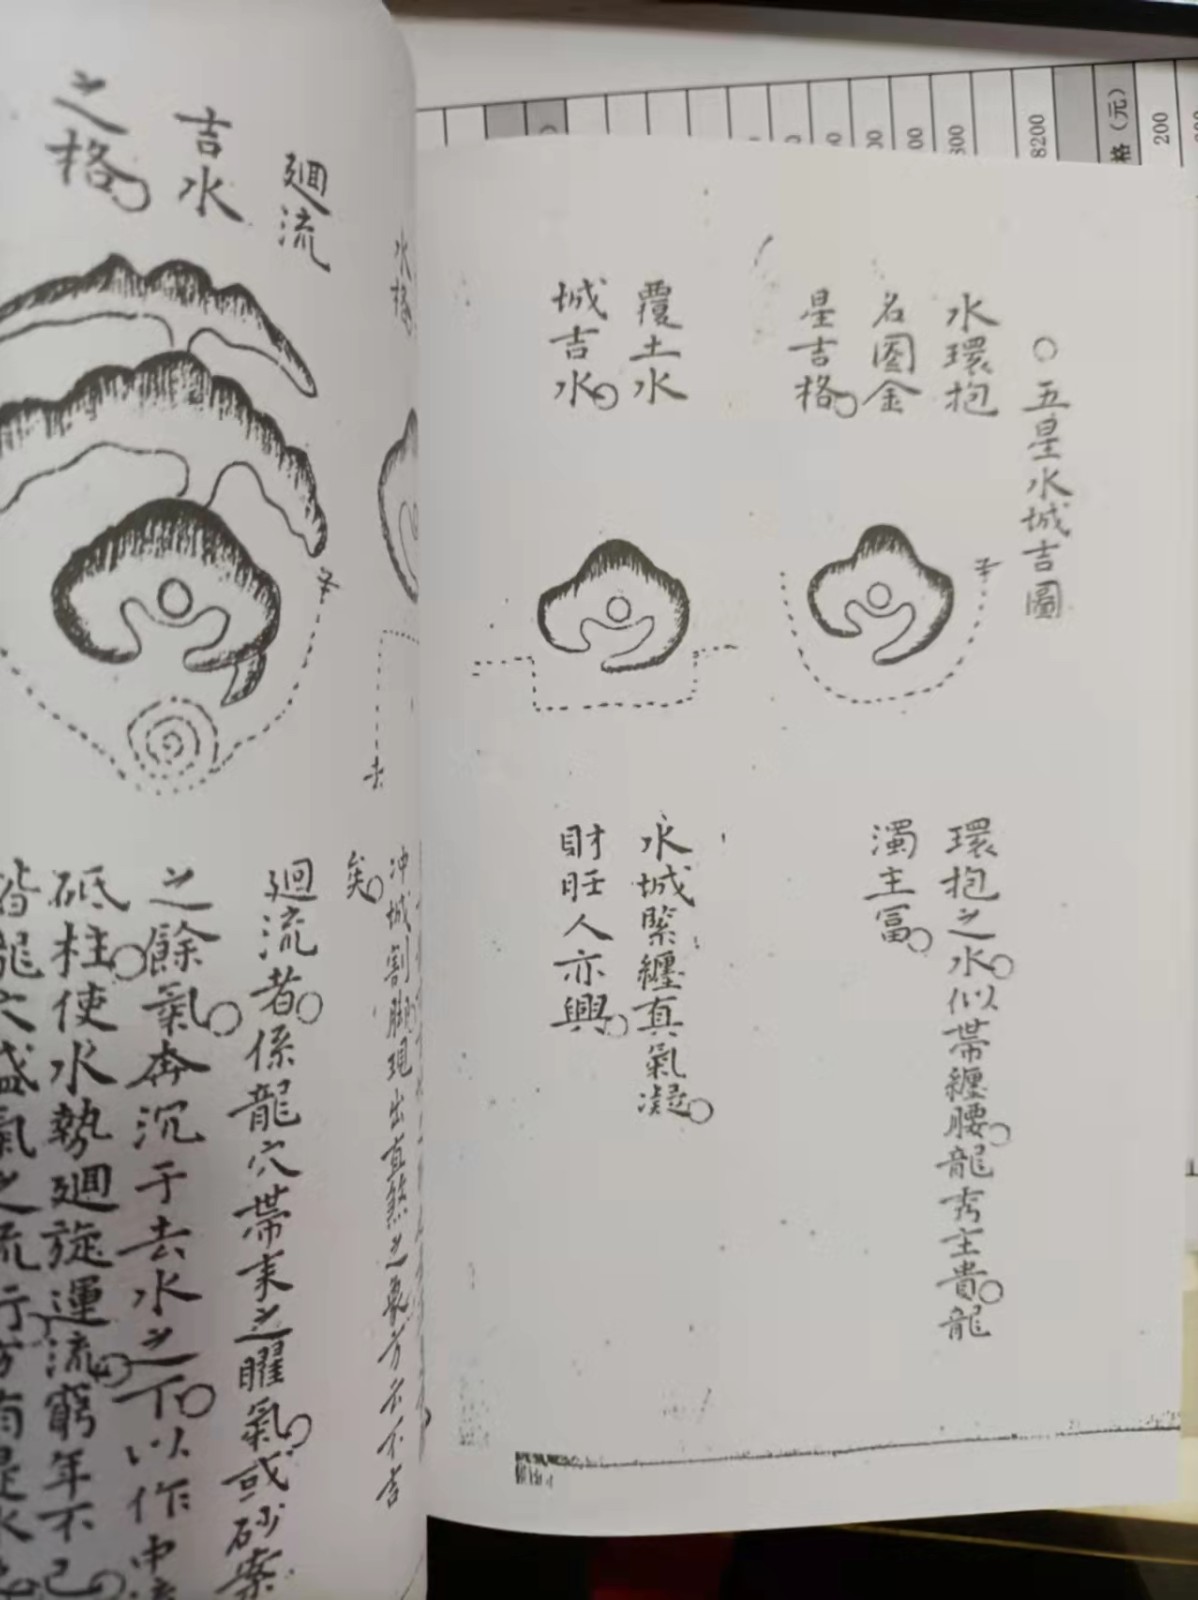 ○五星水城吉圖
水環抱
名圓金
星吉格○
覆土水
城吉水○
環抱之水○似帶纏腰○龍秀主貴○龍
濁主富○
水城緊纏真氣凝○
財旺人亦興○
水格
去
冲城割脚現出直煞之象方云不吉
矣○
廻流
吉水
之格○
廻流者○係龍穴帶來之曜氣○或砂案
之餘氣○奔沉于去水之下○以作中
砥柱○使水勢廻旋運流○窮年不已○
皆龍穴盛氣之流行
格（元）
200
8200